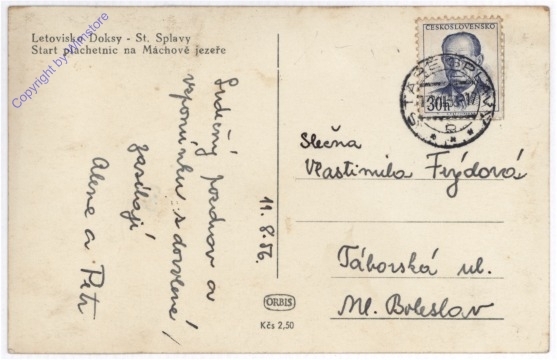 Letovisko Doksy - St. Splavy
Start plachetnic na Máchově jezeře
Copyright by Wimstore
ČESKOSLOVENSKO
30h
STARÉ SPLAVY
Srdečný pozdrav a
vzpomínku s dovolené,
zasílají
Alena a Petr
11. 8. 56.
ORBIS
Kčs 2,50
Slečna
Vlastimila Frýdová
Táborská ul.
Ml. Boleslav